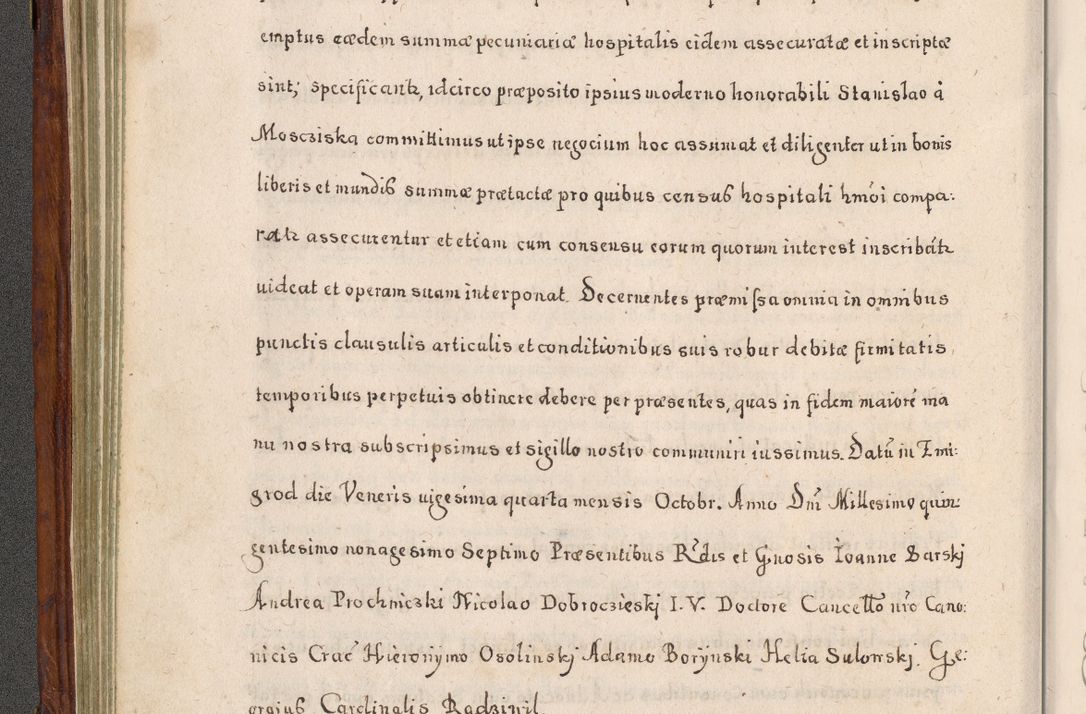 emptus eædem summæ pecuniariæ hospitalis eidem assecuratæ et inscriptæ
sint; specificantr, idcirco præposito ipsius moderno honorabili Stanislao à
Moscziska committimus ut ipse negocium hoc assumat et diligenter ut in bonis
liberis et mundis summæ prætactæ pro quibus census hospitali hmõi compa:
ratr assecurentur et etiam cum consensu eorum quorum interest inscribãtr
uideat et operam suam interponat. Decernentes præmissa omnia in omnibus
punctis clausulis articulis et conditionibus suis robur debitæ firmitatis
temporibus perpetuis obtinere debere per præsentes, quas in fidem maiorẽ ma
nu nostra subscripsimus et sigillo nostro communiri iussimus. Datũ in Zmi:
grod die Veneris uigesima quarta mensis Octobr. Anno Dnĩ Millesimo quin
gentesimo nonagesimo Septimo Præsentibus Rdis et Gnosis Ioanne Barskj
Andrea Prochniczki Nicolao Dobroczieskj I. V. Doctore Cancello nro Cano:
nicis Crac Hieronymo Osolinskj Adamo Borynski Helia Sulowskj. Ge:
orgius Cardinalis Radziwil